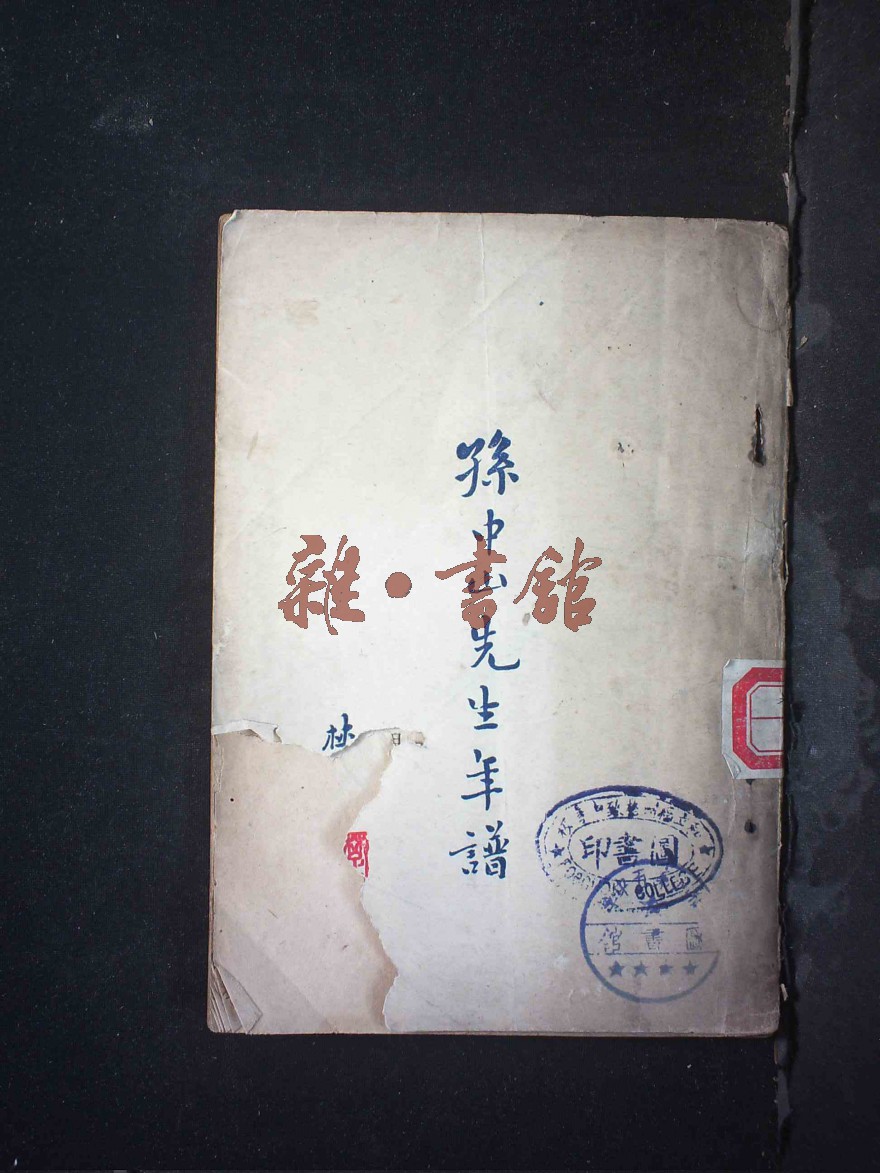 孫中山先生年譜
林
雜·書館
圖書印
COLLEGE
圖書館